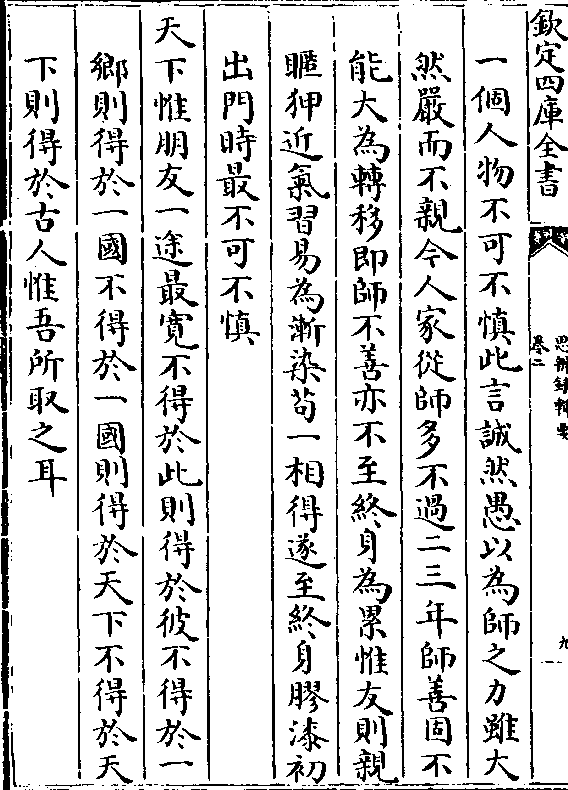 欽定四庫全書
思辨録輯要
卷二
九
一個人物不可不慎此言誠然愚以為師之力雖大
然嚴而不親今人家從師多不過二三年師善固不
能大為轉移即師不善亦不至終身為累惟友則親
暱狎近氣習易為漸染茍一相得遂至終身膠漆初
出門時最不可不慎
天下惟朋友一途最寛不得於此則得於彼不得於一
鄉則得於一國不得於一國則得於天下不得於天
下則得於古人惟吾所取之耳